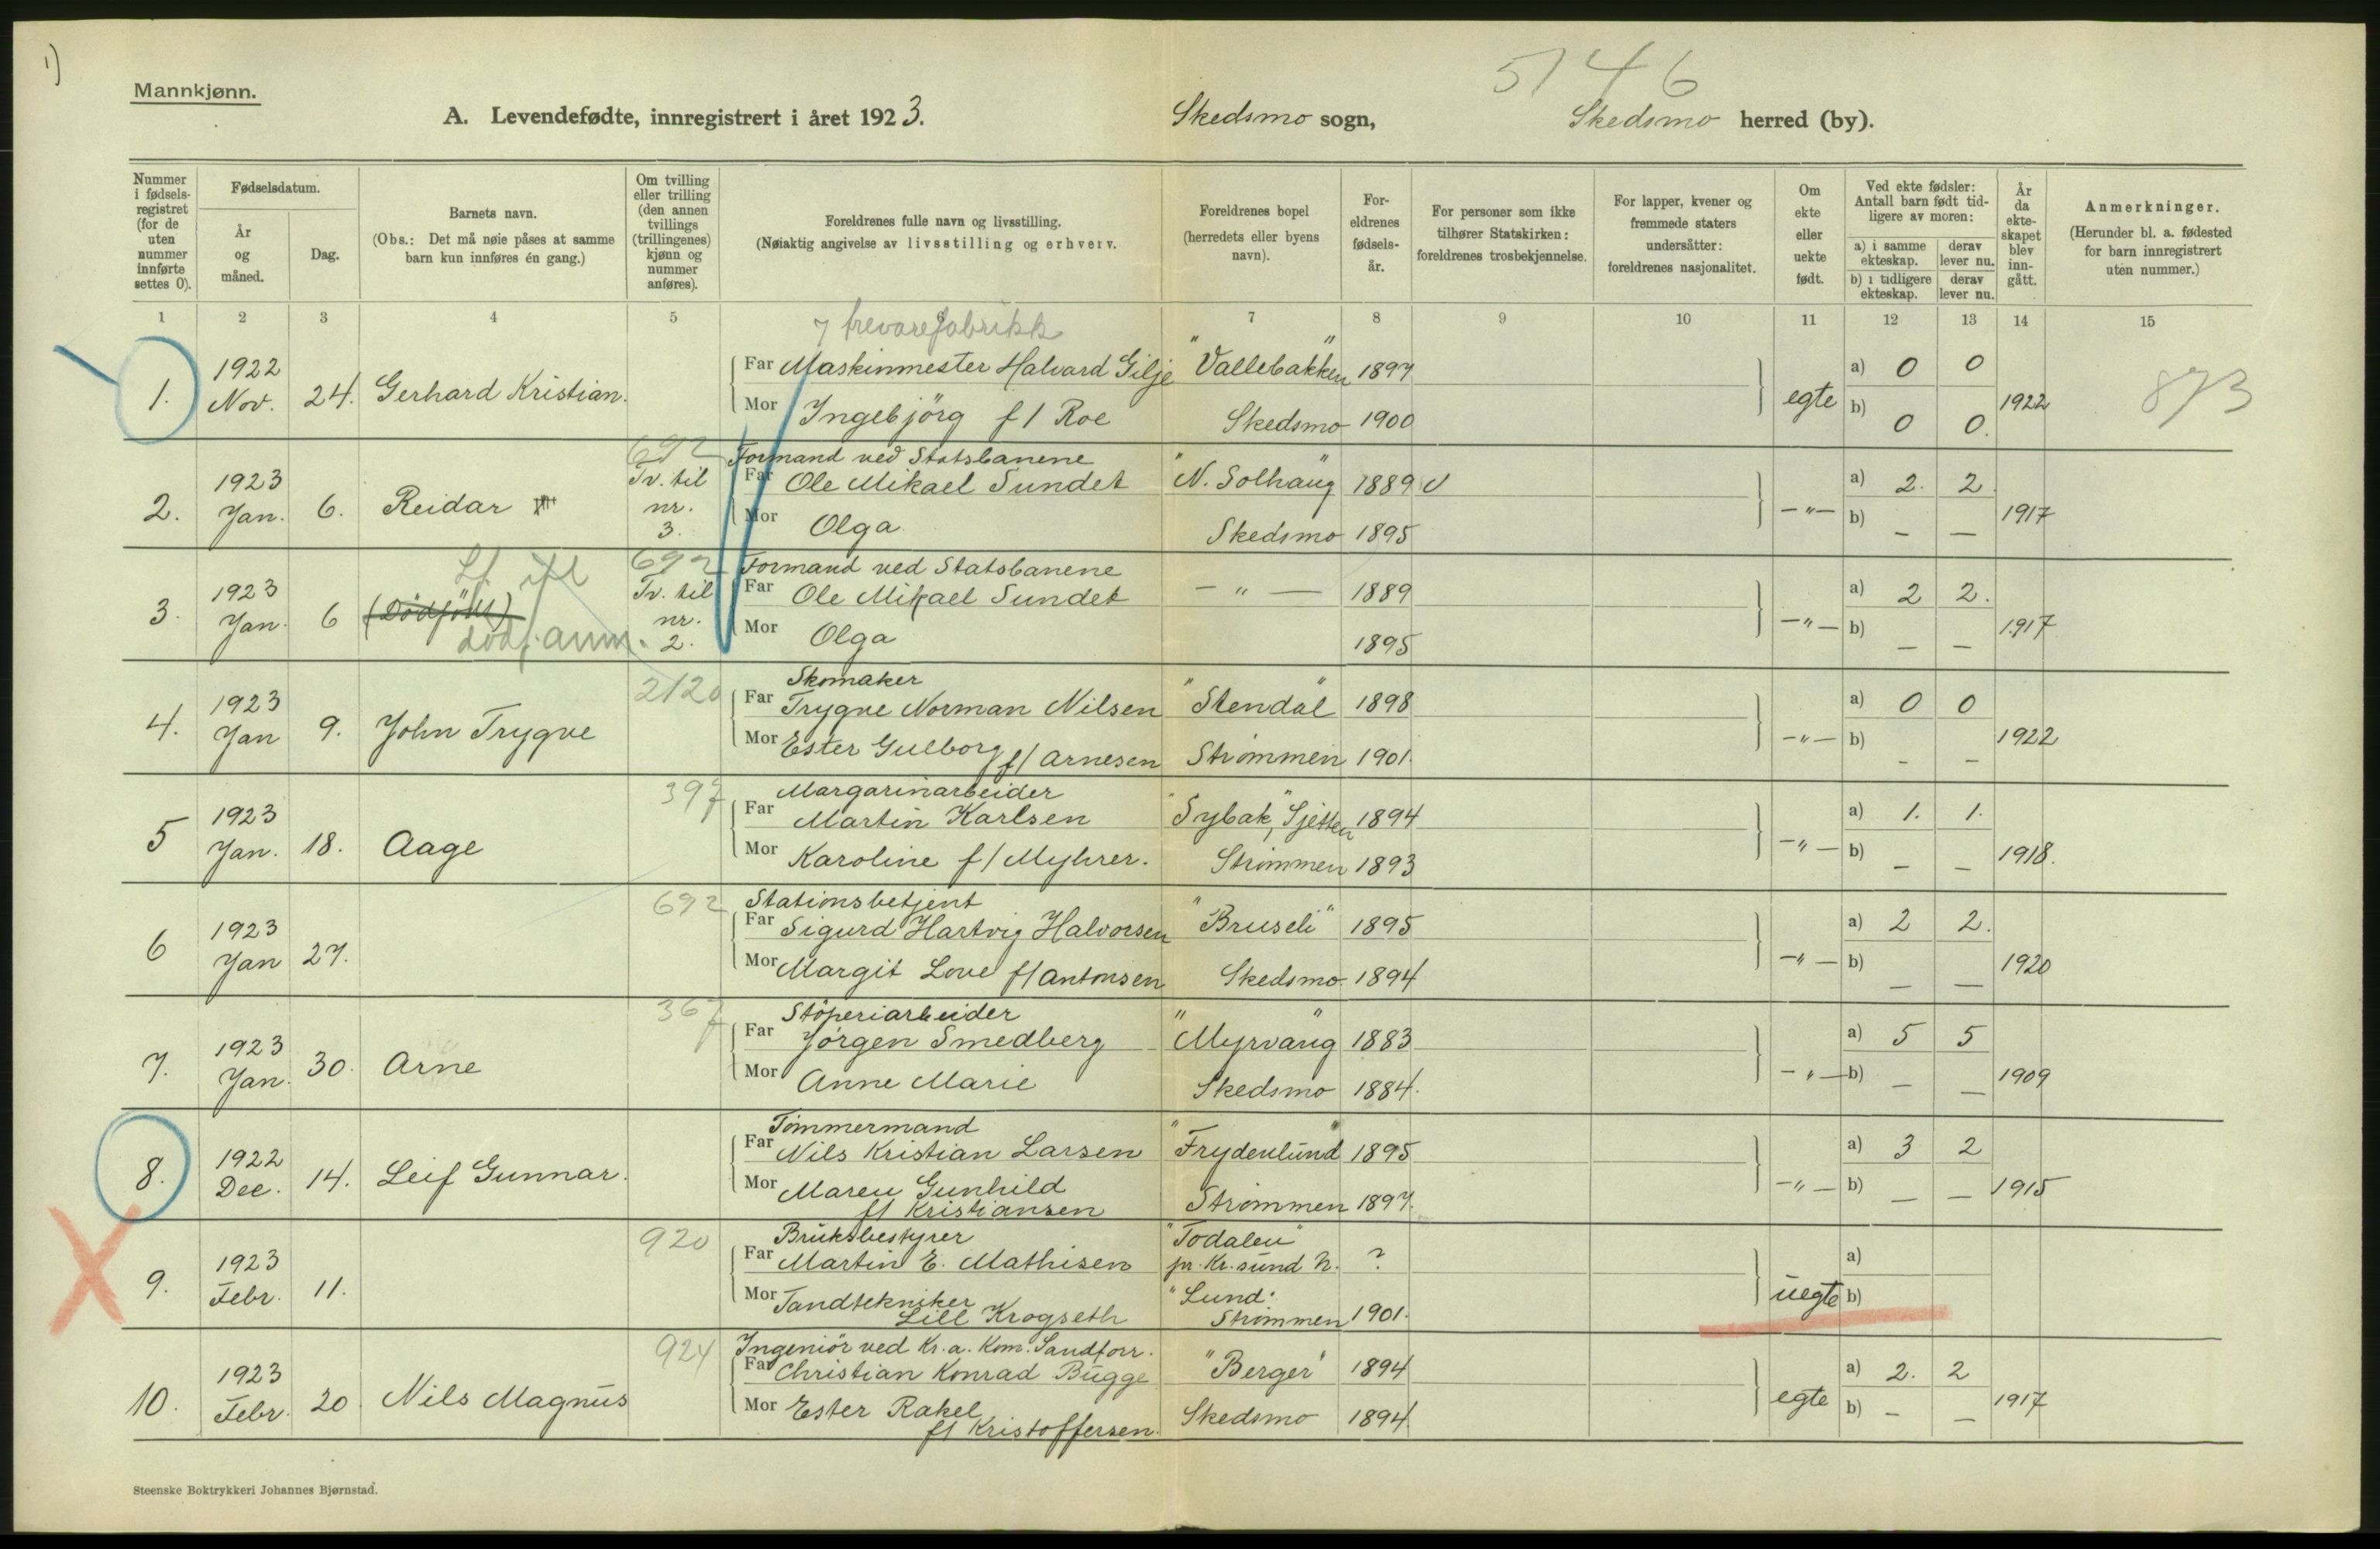 1)
5146
Mannkjønn.
A. Levendefødte, innregistrert i året 1923. Skedsmo sogn, Skedsmo herred (by).
Nummer i fødselsregistret (for de uten nummer innførte settes 0).
Fødselsdatum.
År og måned.
Dag.
Barnets navn.
(Obs.: Det må nøie påses at samme barn kun innføres én gang.)
Om tvilling eller trilling (den annen tvillings (trillingenes) kjønn og nummer anføres).
Foreldrenes fulle navn og livsstilling.
(Nøiaktig angivelse av livsstilling og erhverv.
Foreldrenes bopel (herredets eller byens navn).
Foreldrenes fødselsår.
For personer som ikke tilhører Statskirken: foreldrenes trosbekjennelse.
For lapper, kvener og fremmede staters undersåtter: foreldrenes nasjonalitet.
Om ekte eller uekte født.
Ved ekte fødsler: Antall barn født tidligere av moren:
a) i samme ekteskap. derav lever nu.
b) i tidligere ekteskap. derav lever nu.
År da ekteskapet blev inngått.
Anmerkninger.
(Herunder bl. a. fødested for barn innregistrert uten nummer.)
1 2 3 4 5 6 7 8 9 10 11 12 13 14 15
trevarefabrikk
1. 1922 Nov. 24. Gerhard Kristian.
Far Maskinmester Halvard Gilje "Vallebakken" 1897
Mor Ingebjörg f/ Roe Skedsmo 1900
egte a) 0 0 b) 0 0. 1922 873
2. 1923 Jan. 6. Reidar 692 Tv. til nr. 3.
Formand ved Statsbanene
Far Ole Mikael Sundet "N. Solhaug" 1889
Mor Olga Skedsmo 1895
—"— a) 2. 2. b) — — 1917
3. 1923 Jan. 6 (Dödfödt) Lf. død, anm. 692 Tv. til nr. 2.
Formand ved Statsbanene
Far Ole Mikael Sundet —"— 1889
Mor Olga 1895
—"— a) 2 2. b) — — 1917
4. 1923 Jan 9. John Trygve 2120
Skomaker
Far Trygve Norman Nilsen "Stendal" 1898
Mor Ester Gulborg f/ Arnesen Strömmen 1901.
—"— a) 0 0 b) - - 1922
5 1923 Jan. 18. Aage 397
Margarinarbeider
Far Martin Karlsen "Sybak", Sjetten 1894
Mor Karoline f/ Myhrer. Strömmen 1893
—"— a) 1. 1. b) — — 1918.
6 1923 Jan 27. 692
Stationsbetjent
Far Sigurd Hartvig Halvorsen "Bruseli" 1895
Mor Margit Love f/ Antonsen Skedsmo 1894
—"— a) 2 2. b) — — 1920
7. 1923 Jan. 30. Arne 367
Stöperiarbeider
Far Jörgen Smedberg "Myrvang" 1883
Mor Anne Marie Skedsmo 1884.
—"— a) 5 5 b) — — 1909
8. 1922 Dec. 14. Leif Gunnar.
Tömmermand
Far Nils Kristian Larsen "Frydenlund" 1895
Mor Maren Gunhild f/ Kristiansen Strömmen 1897.
—"— a) 3 2 b) — — 1915
9. 1923 Febr. 11. 920
Bruksbestyrer
Far Martin E. Mathisen "Todalen" pr. Kr. sund N. ?
Mor Tandtekniker Lill Krogseth "Lund" Strömmen 1901.
uegte a) b)
10. 1923 Febr. 20 Nils Magnus 924
Ingeniör ved Kr. a. Kom. Sandforr.
Far Christian Konrad Bugge "Berger" 1894
Mor Ester Rakel f/ Kristoffersen. Skedsmo 1894
egte a) 2. 2 b) — — 1917
Steenske Boktrykkeri Johannes Bjørnstad.